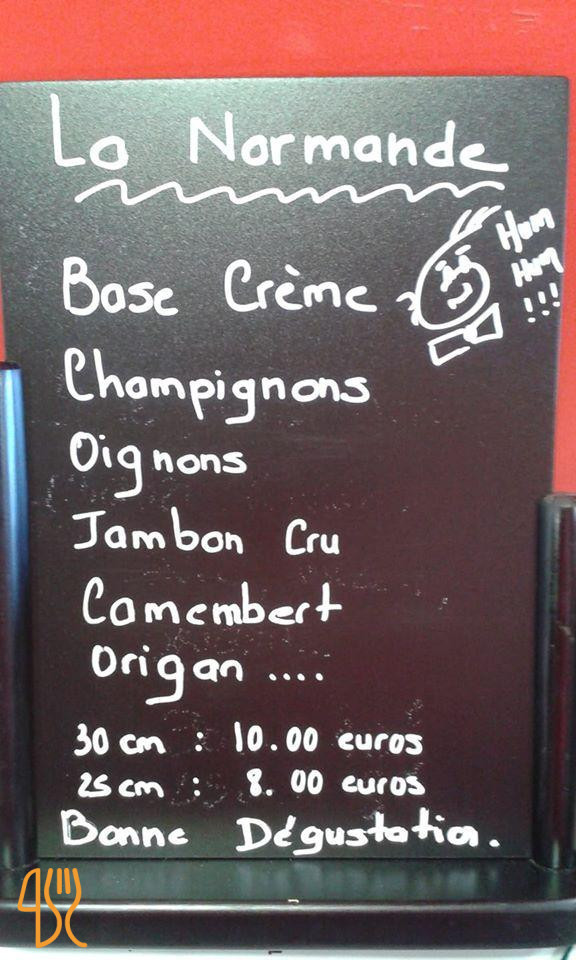 La Normande
Hum
Hum
!!!
Base Crème
Champignons
Oignons
Jambon Cru
Camembert
Origan ....
30 cm : 10.00 euros
25 cm : 8.00 euros
Bonne Dégustation.